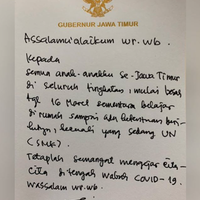 GUBERNUR JAWA TIMUR
Assalamu'alaikum wr. wb.
Kepada
semua anak-anakku se-Jawa Timur
di seluruh tingkatan, mulai besok
tgl 16 Maret sementara belajar
di rumah sampai ada ketentuan beri-
kutnya, kecuali yang sedang UN
(SMK).
Tetaplah semangat mengejar cita-
cita di tengah wabah COVID-19.
Wassalam wr. wb.